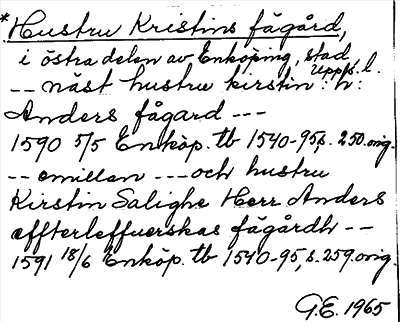 *Hustru Kristins fågård,
i östra delen av Enköping, stad
Upps. l.
-- näst hustru kirstin : h :
Anders fågard ---
1590 5/5 Enköp. tb 1540-95, s. 250. orig.
-- emillan --- och hustru
Kirstin Salighe Herr Anders
effterleffuerskas fågårdh --
1591 18/6 Enköp. tb 1540-95, s. 259. orig.
G.E. 1965